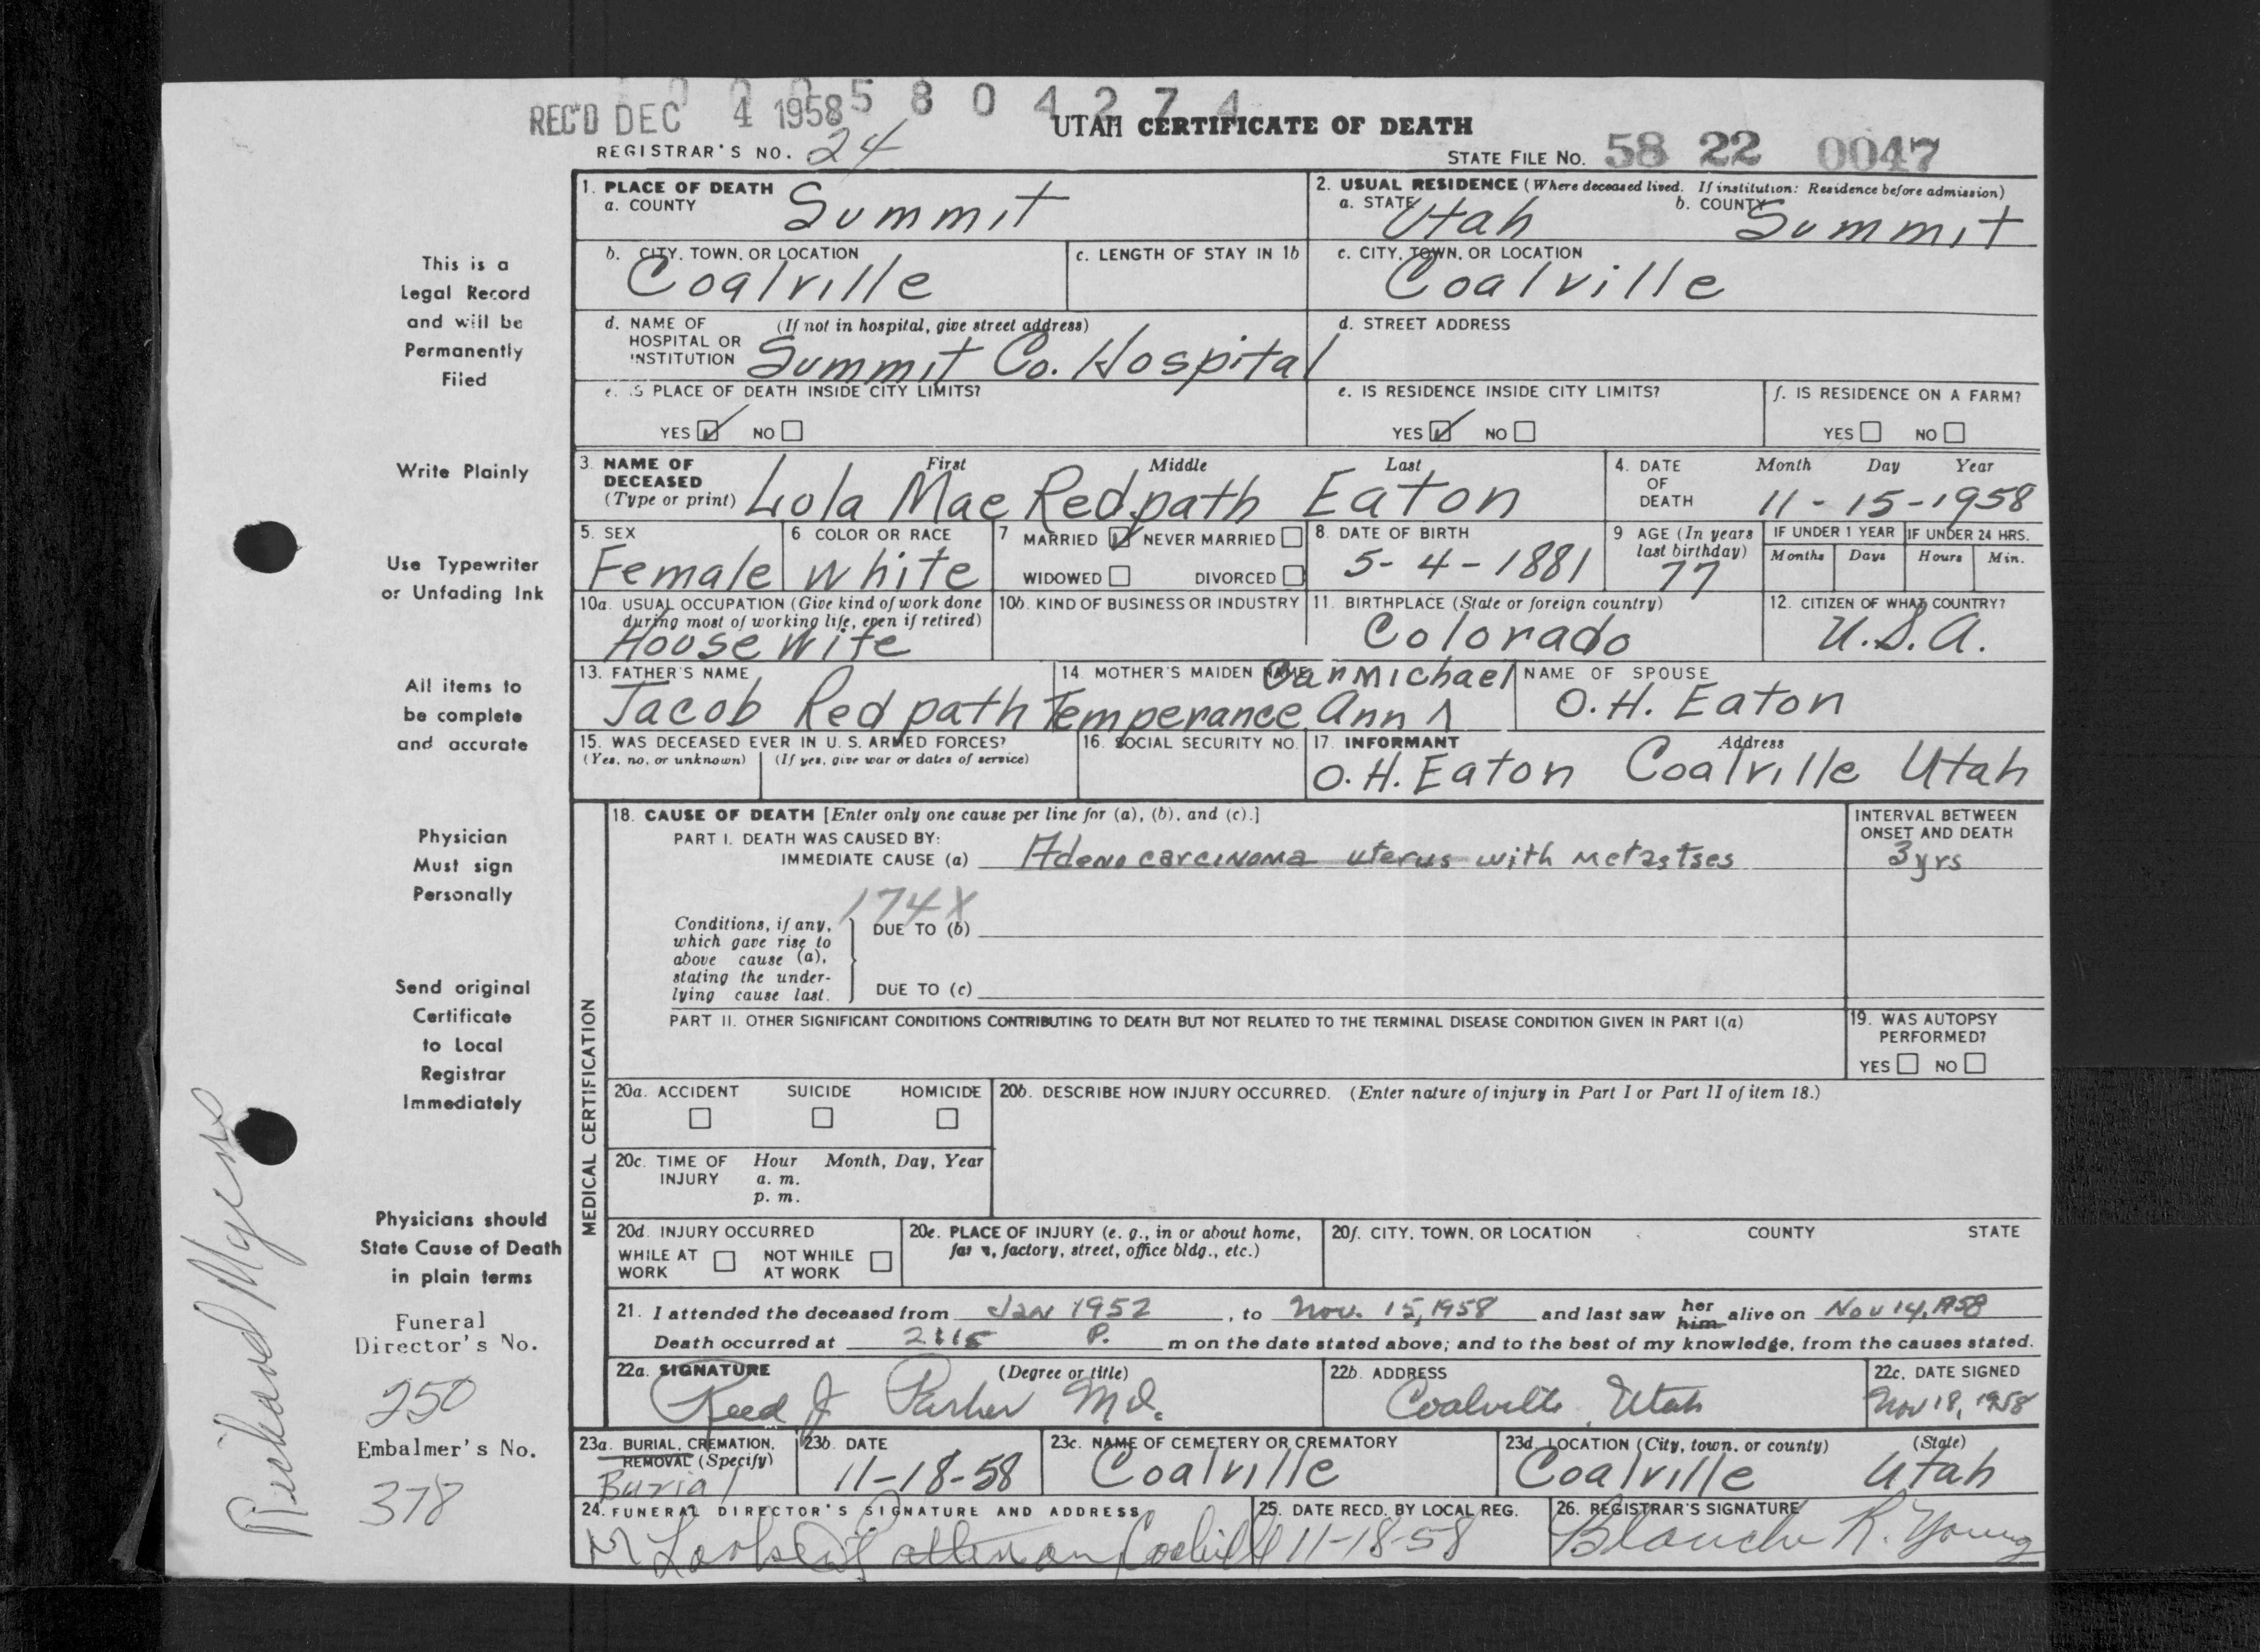 0 0 0 5 8 0 4 2 7 4
REC'D DEC 4 1958
UTAH CERTIFICATE OF DEATH
REGISTRAR'S NO. 24
STATE FILE NO. 58 22 0047
1. PLACE OF DEATH
a. COUNTY Summit
2. USUAL RESIDENCE (Where deceased lived. If institution: Residence before admission)
a. STATE Utah b. COUNTY Summit
b. CITY, TOWN, OR LOCATION Coalville
c. LENGTH OF STAY IN 1b
c. CITY, TOWN, OR LOCATION Coalville
d. NAME OF HOSPITAL OR INSTITUTION (If not in hospital, give street address) Summit Co. Hospital
d. STREET ADDRESS
e. IS PLACE OF DEATH INSIDE CITY LIMITS?
YES NO
e. IS RESIDENCE INSIDE CITY LIMITS?
YES NO
f. IS RESIDENCE ON A FARM?
YES NO
3. NAME OF DECEASED (Type or print) First Middle Last
Lola Mae Redpath Eaton
4. DATE OF DEATH Month Day Year
11-15-1958
5. SEX Female
6 COLOR OR RACE White
7 MARRIED NEVER MARRIED
WIDOWED DIVORCED
8. DATE OF BIRTH 5-4-1881
9 AGE (In years last birthday) 77
IF UNDER 1 YEAR Months Days
IF UNDER 24 HRS. Hours Min.
10a. USUAL OCCUPATION (Give kind of work done during most of working life, even if retired)
House wife
10b. KIND OF BUSINESS OR INDUSTRY
11. BIRTHPLACE (State or foreign country) Colorado
12. CITIZEN OF WHAT COUNTRY? U.S.A.
13. FATHER'S NAME Jacob Redpath
14. MOTHER'S MAIDEN NAME Temperance Ann Carmichael
NAME OF SPOUSE O.H. Eaton
15. WAS DECEASED EVER IN U. S. ARMED FORCES?
(Yes, no, or unknown) (If yes, give war or dates of service)
16. SOCIAL SECURITY NO.
17. INFORMANT Address
O.H. Eaton Coalville Utah
MEDICAL CERTIFICATION
18. CAUSE OF DEATH [Enter only one cause per line for (a), (b), and (c).]
INTERVAL BETWEEN ONSET AND DEATH
PART I. DEATH WAS CAUSED BY:
IMMEDIATE CAUSE (a) Adeno carcinoma uterus with metastses 3 yrs
174X
Conditions, if any, which gave rise to above cause (a), stating the underlying cause last.
DUE TO (b)
DUE TO (c)
PART II. OTHER SIGNIFICANT CONDITIONS CONTRIBUTING TO DEATH BUT NOT RELATED TO THE TERMINAL DISEASE CONDITION GIVEN IN PART I(a)
19. WAS AUTOPSY PERFORMED?
YES NO
20a. ACCIDENT SUICIDE HOMICIDE
20b. DESCRIBE HOW INJURY OCCURRED. (Enter nature of injury in Part I or Part II of item 18.)
20c. TIME OF INJURY Hour Month, Day, Year
a. m.
p. m.
20d. INJURY OCCURRED
WHILE AT WORK NOT WHILE AT WORK
20e. PLACE OF INJURY (e. g., in or about home, farm, factory, street, office bldg., etc.)
20f. CITY, TOWN, OR LOCATION COUNTY STATE
21. I attended the deceased from Jan 1952, to Nov. 15, 1958 and last saw her him alive on Nov 14, 1958
Death occurred at 2:15 P. m on the date stated above; and to the best of my knowledge, from the causes stated.
22a. SIGNATURE (Degree or title)
Reed J Parker M.D.
22b. ADDRESS Coalville, Utah
22c. DATE SIGNED Nov 18, 1958
23a. BURIAL, CREMATION, REMOVAL (Specify) Burial
23b. DATE 11-18-58
23c. NAME OF CEMETERY OR CREMATORY Coalville
23d. LOCATION (City, town, or county) (State)
Coalville Utah
24. FUNERAL DIRECTOR'S SIGNATURE AND ADDRESS
25. DATE RECD. BY LOCAL REG. 11-18-58
26. REGISTRAR'S SIGNATURE Blanche R. Young
This is a
Legal Record
and will be
Permanently
Filed
Write Plainly
Use Typewriter
or Unfading Ink
All items to
be complete
and accurate
Physician
Must sign
Personally
Send original
Certificate
to Local
Registrar
Immediately
Physicians should
State Cause of Death
in plain terms
Funeral
Director's No.
250
Embalmer's No.
378
Richard Myers